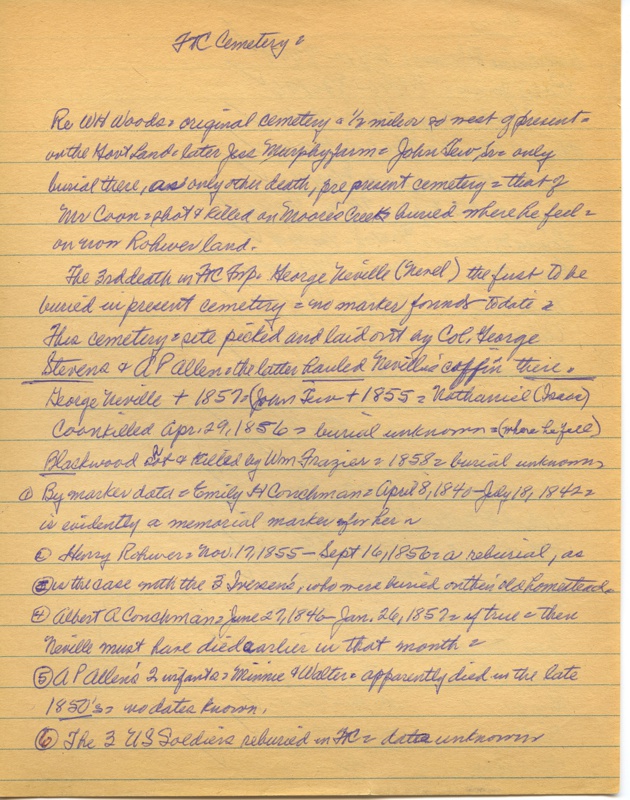 FTC Cemetery =
Re WH Woods = original cemetery = 1/2 mile or so west of present =
on the Govt Land = later Jess Murphy farm = John Tew, Sr = only
burial there, as only other death, pre present cemetery = that of
Mr Coon = shot & killed on Moores Creek buried where he feel =
on now Rohwer land.
The 3rd death in FTC Twp. George Neville (Nevel) the first to be
buried in present cemetery = no marker found = to date =
This cemetery = site picked and laid out by Col. George
Stevens & A P Allen = the latter hauled Neville's coffin there =
George Neville + 1857 = (John Tew + 1855 = Nathaniel (Isaac)
Coon killed Apr. 29, 1856 = burial unknown = (where he fell)
Blackwood & killed by Wm Frazier = 1858 = burial unknown =
① By marker data = Emily H Conchman = April 8, 1840 - July 18, 1842 =
is evidently a memorial marker for her =
Henry Rohwer = Nov. 17, 1855 - Sept 16, 1856 = a reburial, as
③ is the case with the 3 Iversen's, who were buried on their old homestead =
④ Albert A Conchman = June 27, 1846 - Jan. 26, 1857 = if true = then
Neville must have died earlier in that month =
⑤ A P Allen's 2 infants = Minnie & Walter = apparently died in the late
1850's = no dates known.
⑥ The 3 US Soldiers reburied in FTC = data unknown